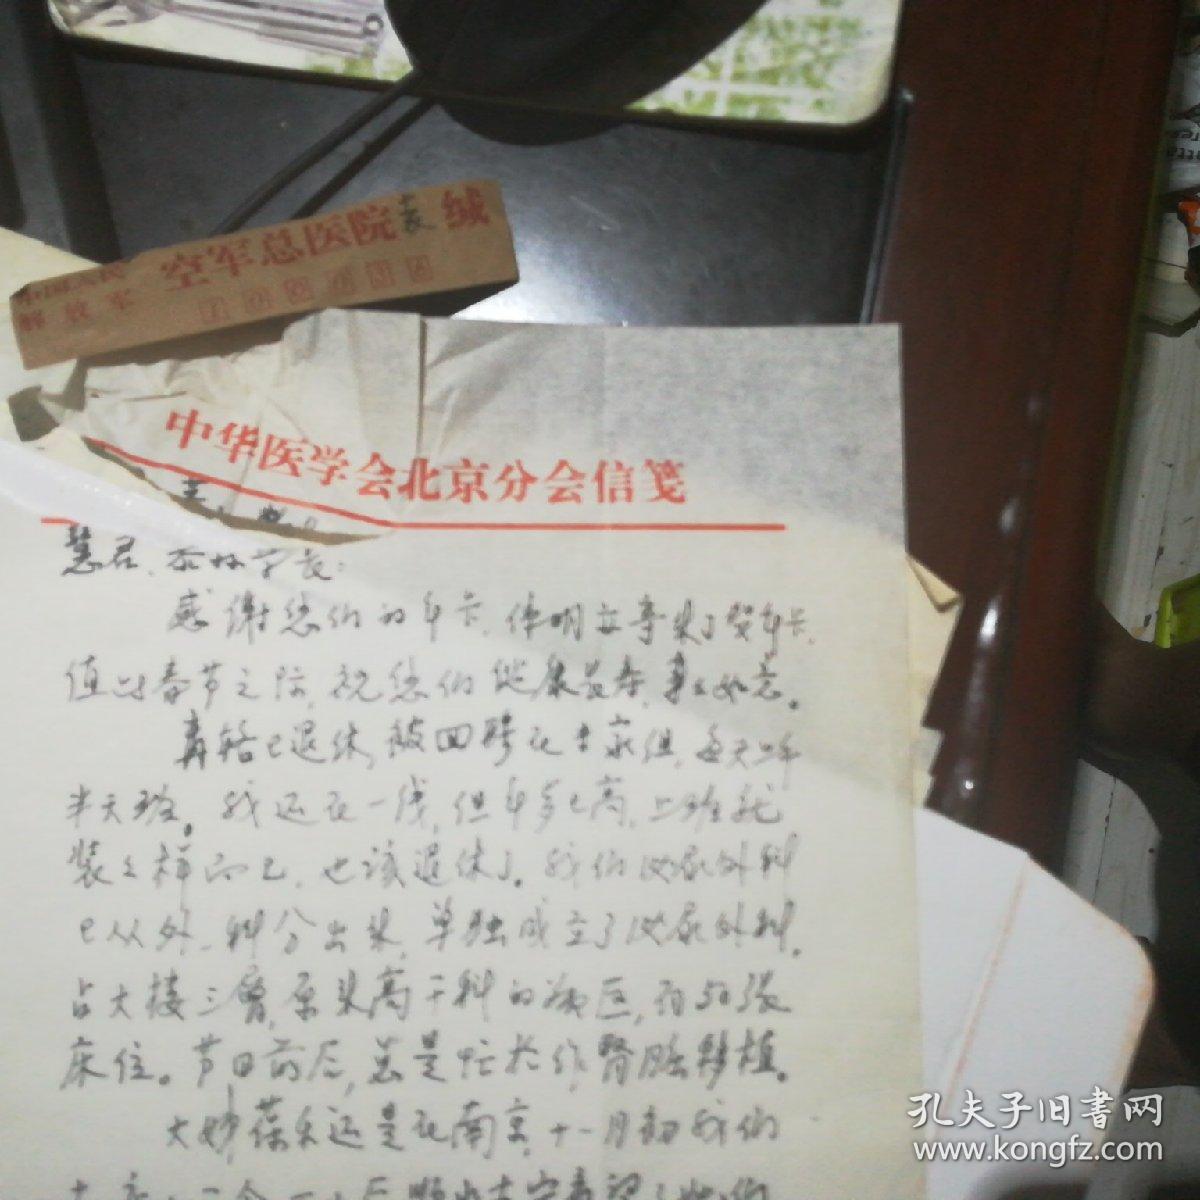 空军总医院袁缄
解放军
中华医学会北京分会信笺
慧君、学长：
感谢您们的年卡，伟明也寄来了贺年卡，
值此春节之际，祝您们健康长寿，事事如意。
已退休，被回聘在专家组，每天上午
半天班。我还在一线，但年岁已高，上班就
装装样而已，也该退休了。我们泌尿外科
已从外一科分出来，单独成立了泌尿外科，
占大楼三层，原来高干科的病区，有50张
床位。节日前后，总是忙于作肾脏移植。
大还是在南京，十一月初我们
孔夫子旧书网
www.kongfz.com